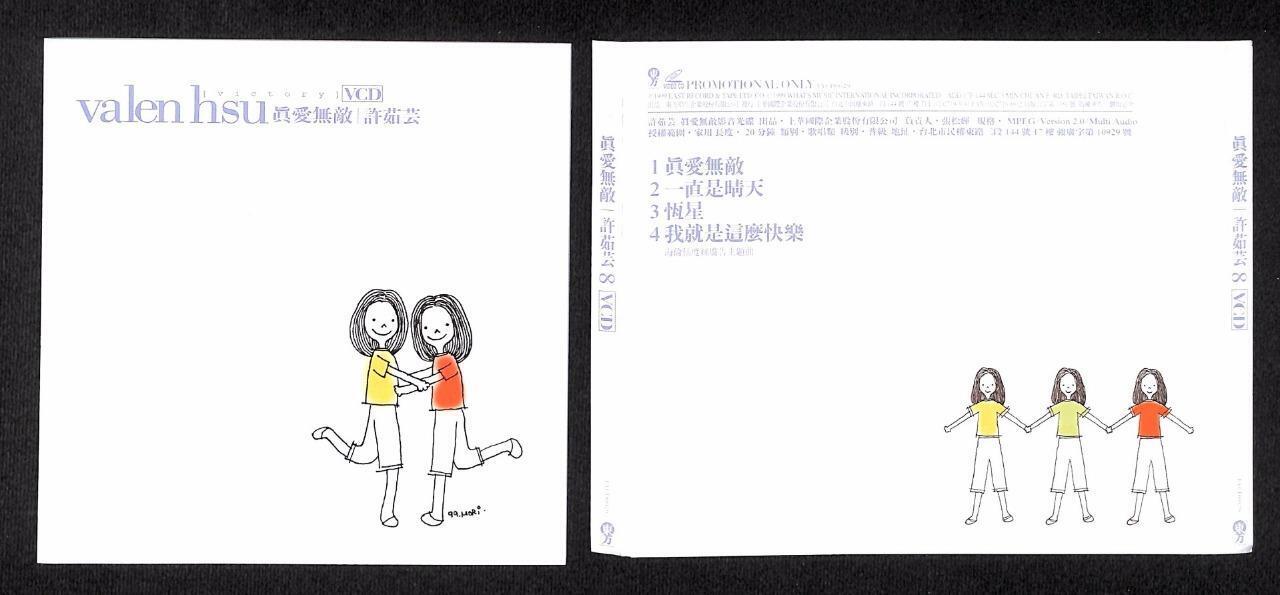 [victory] VCD
valen hsu 眞愛無敵|許茹芸
99.MORi.
眞愛無敵|許茹芸 8 VCD
東方
東方 VIDEO CD PROMOTIONAL ONLY
許茹芸 眞愛無敵影音光碟 出品・上華國際企業股份有限公司 負責人・張松輝 規格・MPEG Version 2.0/Multi Audio
授權範圍・家用 長度・20分鐘 類別・歌唱類 級別・普級 地址・台北市民權東路 段144號17樓 第10929號
1 眞愛無敵
2 一直是晴天
3 恆星
4 我就是這麼快樂
眞愛無敵|許茹芸 8 VCD
東方